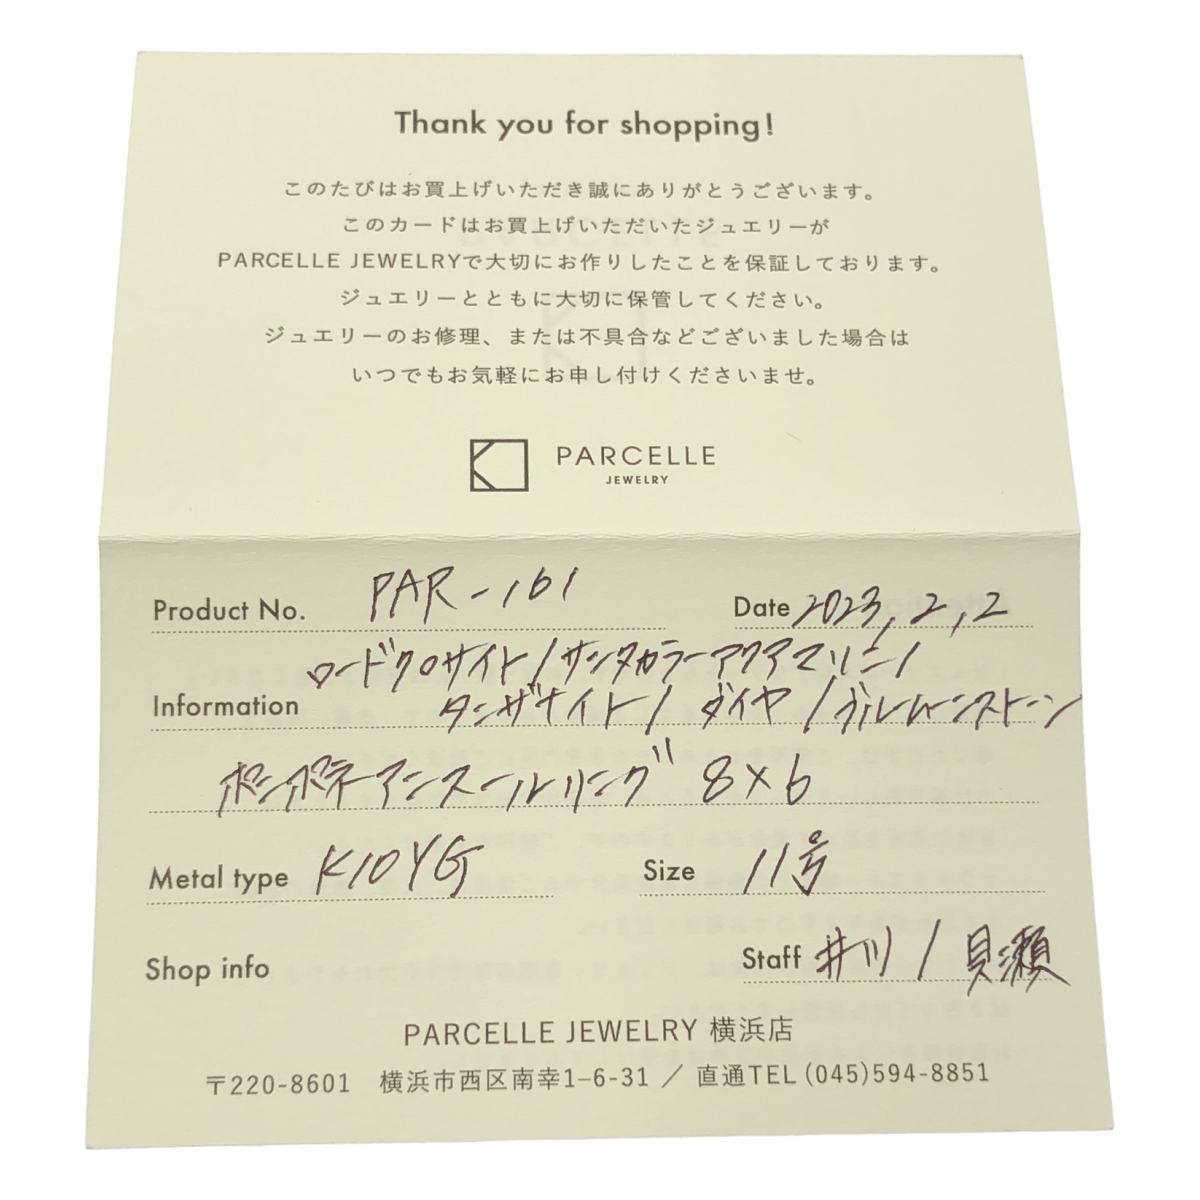 Thank you for shopping!
このたびはお買上げいただき誠にありがとうございます。
このカードはお買上げいただいたジュエリーが
PARCELLE JEWELRYで大切にお作りしたことを保証しております。
ジュエリーとともに大切に保管してください。
ジュエリーのお修理、または不具合などございました場合は
いつでもお気軽にお申し付けくださいませ。
PARCELLE
JEWELRY
Product No. PAR-161
Date 2023,2,2
ロードクロサイト/サンタカラーアクアマリン/
Information タンザナイト/ダイヤ/ブルームーンストーン
ポンポネアンスールリング 8×6
Metal type K10YG
Size 11号
Shop info
Staff 井川/貝瀬
PARCELLE JEWELRY 横浜店
〒220-8601 横浜市西区南幸1-6-31 / 直通TEL (045)594-8851